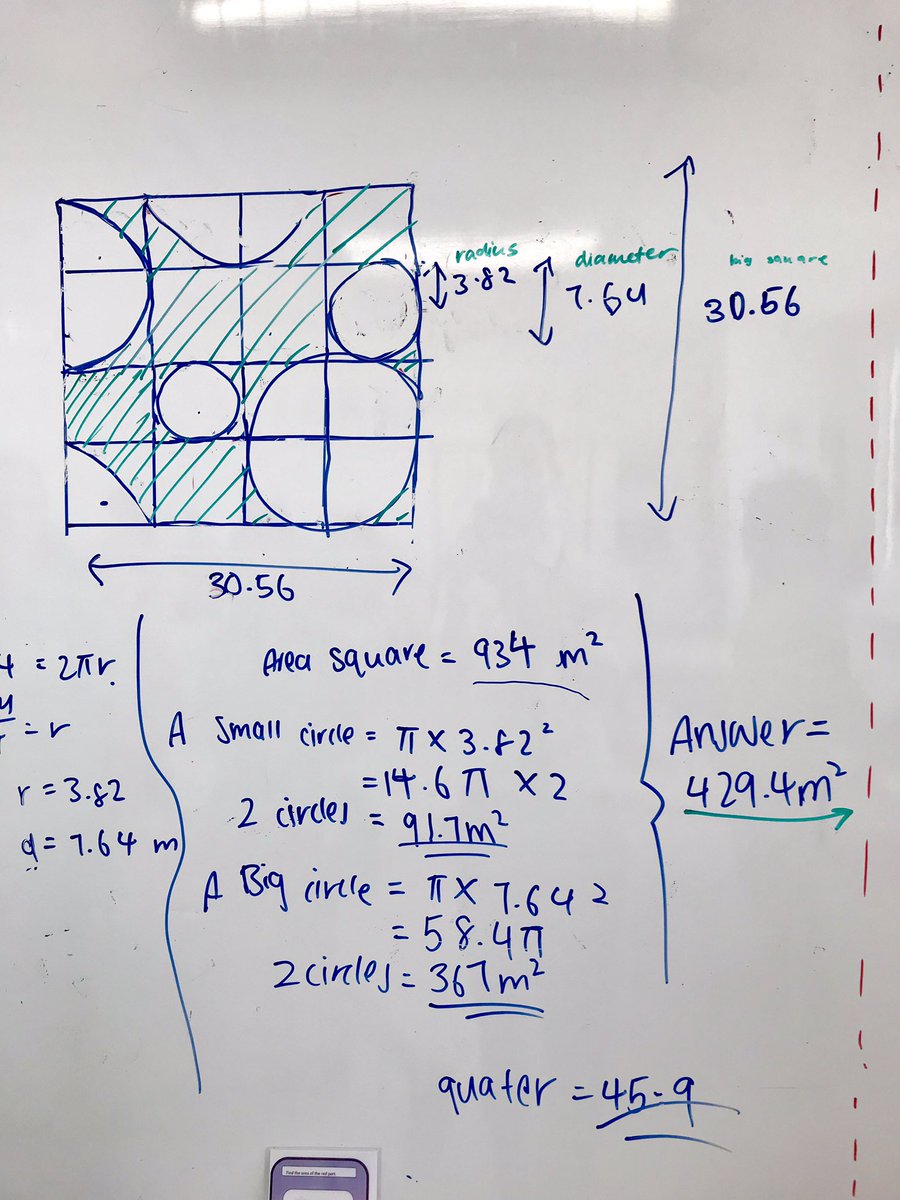 radius
3.82
diameter
7.64
big square
30.56
30.56
4 = 2πr.
= r
r = 3.82
d = 7.64 m
Area square = 934 m²
A small circle = π × 3.82²
= 14.6π × 2
2 circles = 91.7m²
A Big circle = π × 7.64²
= 58.4π
2 circles = 367m²
Answer =
429.4m²
quater = 45.9
Find the area of the red part.